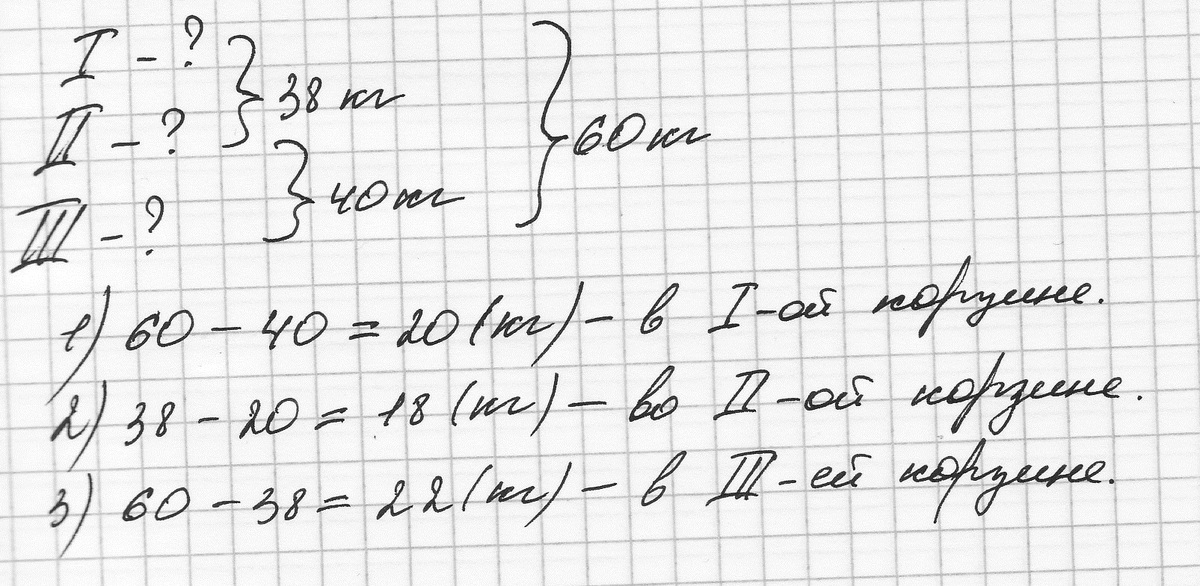 I - ? } 38 кг } 60 кг
II - ?
} 40 кг
III - ?
1) 60 - 40 = 20 (кг) - в I-ой корзине.
2) 38 - 20 = 18 (кг) - во II-ой корзине.
3) 60 - 38 = 22 (кг) - в III-ей корзине.